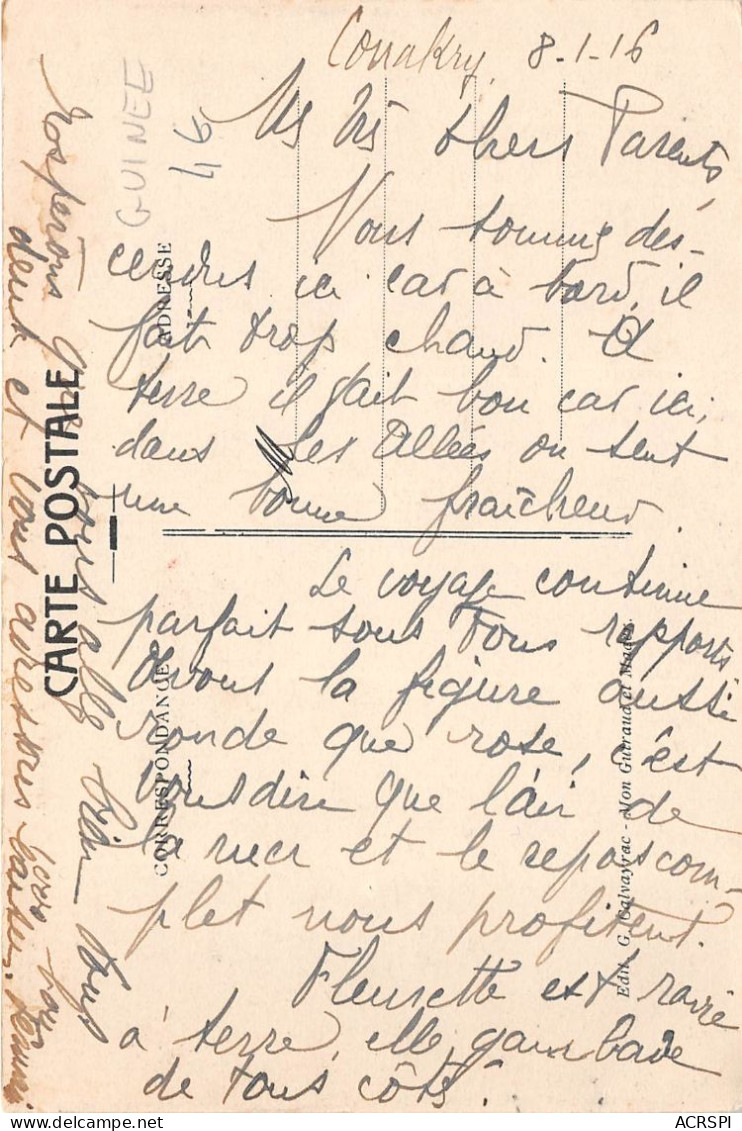 Conakry 8-1-16
Ms Trs chers Parents,
Nous sommes des-
cendus ici car à bord, il
fait trop chaud. A
terre il fait bon car ici,
dans les Allées on sent
une bonne fraîcheur.
Le voyage continue
parfait sous tous rapports
Avons la figure aussi
ronde que rose, c'est
vous dire que l'air de
la mer et le repos com-
plet nous profitent.
Fleurette est ravie
à terre, elle gambade
de tous côtés.
Nosperons que vous allez bien tous
deux et vous adressons bons baisers.
GUINEE
46
CARTE POSTALE
ADRESSE
CORRESPONDANCE
Edit. G. Calvayrac - Mon Guiraud et Miadès.
ACRSPI